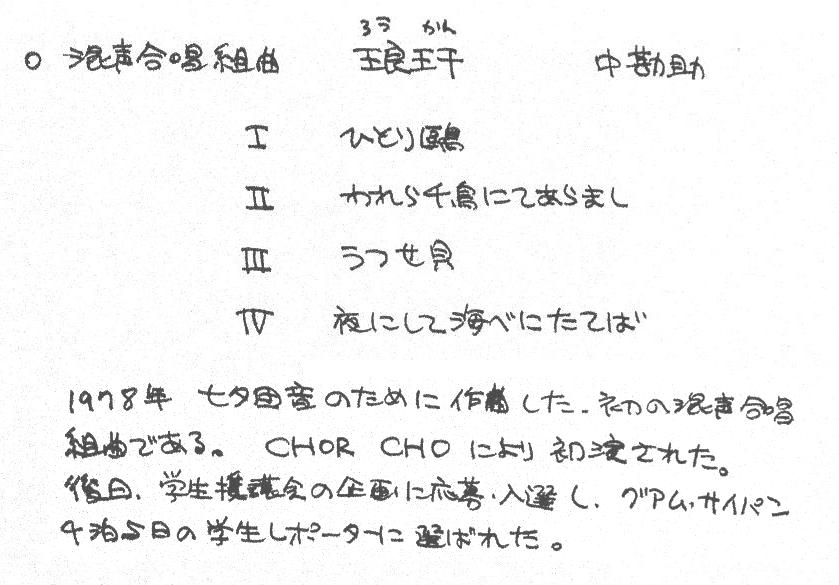 ろう かん
○ 混声合唱組曲 琅玕 中勘助
I ひとり鷗
II われら千鳥にてあらまし
III うつせ貝
IV 夜にして海べにたてば
1978年 七夕音のために作曲した、初の混声合唱
組曲である。 CHOR CHO により初演された。
後日、学生援護会の企画に応募・入選し、グアム・サイパン
4泊5日の学生レポーターに選ばれた。